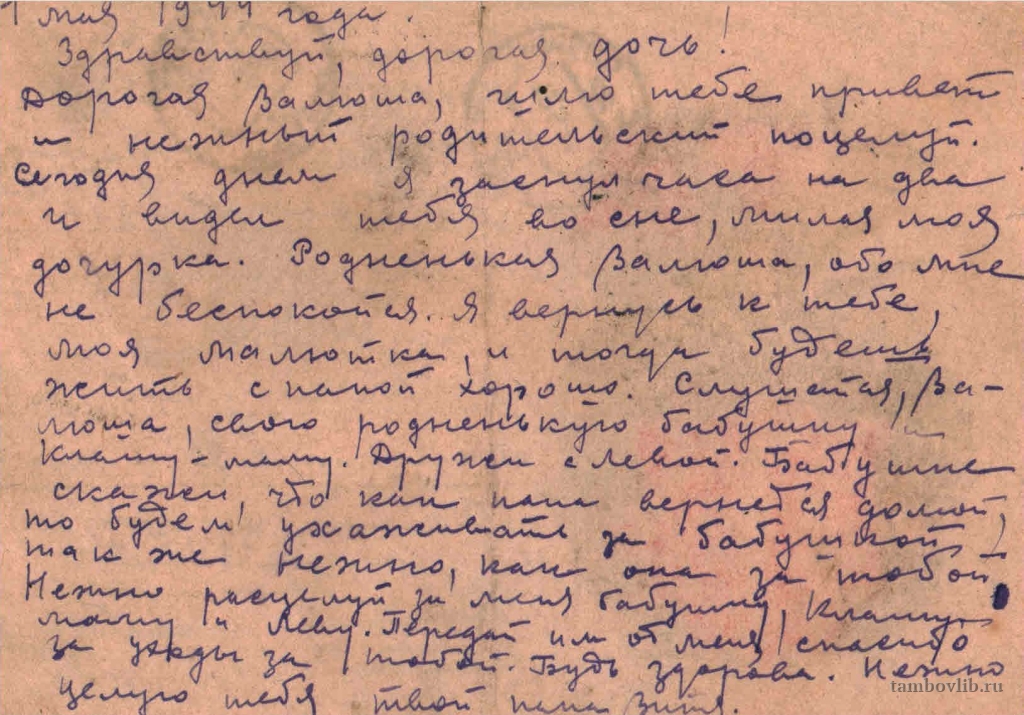 1 мая 1944 года.
Здравствуй, дорогая дочь!
Дорогая Валюша, шлю тебе привет
и нежный родительский поцелуй.
Сегодня днем я заснул часа на два
и видел тебя во сне, милая моя
дочурка. Родненькая Валюша, обо мне
не беспокойся. Я вернусь к тебе,
моя малютка, и тогда будешь
жить с папой хорошо. Слушайся, Ва-
люша, свою родненькую бабушку и
Клашу-маму. Дружи с Левой. Бабушке
скажи, что как папа вернется домой,
то будем ухаживать за бабушкой
так же нежно, как она за тобой.
Нежно расцелуй за меня бабушку, Клашу-
маму и Леву. Передай им от меня спасибо
за уходы за тобой. Будь здорова. Нежно
целую тебя твой папа Витя.
tambovlib.ru